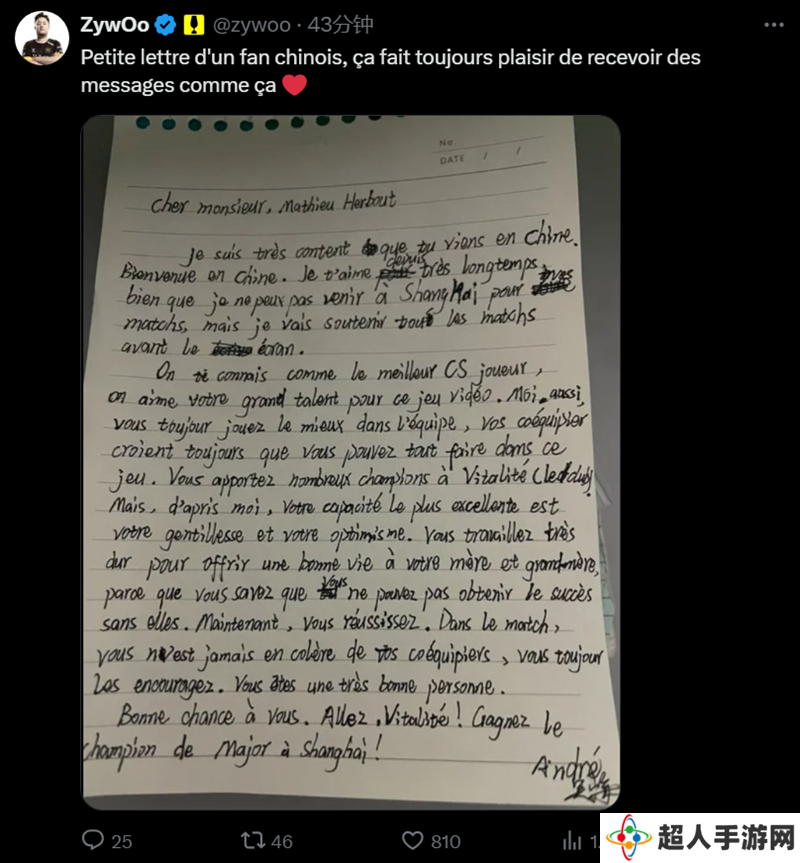 ZywOo @zywoo · 43分钟
Petite lettre d'un fan chinois, ça fait toujours plaisir de recevoir des
messages comme ça ❤️
No
DATE / /
Cher monsieur, Mathieu Herbaut
Je suis très content que tu viens en Chine.
Bienvenue en Chine. Je t'aime depuis très longtemps,
bien que je ne peux pas venir à ShangHai pour
matchs, mais je vais soutenir tous les matchs
avant le écran.
On te connais comme le meilleur CS joueur,
on aime votre grand talent pour ce jeu vidéo. Moi aussi,
vous toujour jouez le mieux dans l'équipe, vos coéquipier
croient toujours que vous pouvez tout faire dans ce
jeu. Vous apportez nombreux champions à Vitalité
Mais, d'apris moi, votre capacité le plus excellente est
votre gentillesse et votre optimisme. Vous travaillez très
dur pour offrir une bonne vie à votre mère et grand-mère,
parce que vous savez que vous ne pouvez pas obtenir le succès
sans elles. Maintenant, vous réussissez. Dans le match,
vous n'est jamais en colère de vos coéquipiers, vous toujour
les encouragez. Vous êtes une très bonne personne.
Bonne chance à vous. Allez, Vitalité! Gagnez le
champion de Major à Shanghai!
André
25 46 810
超人手游网